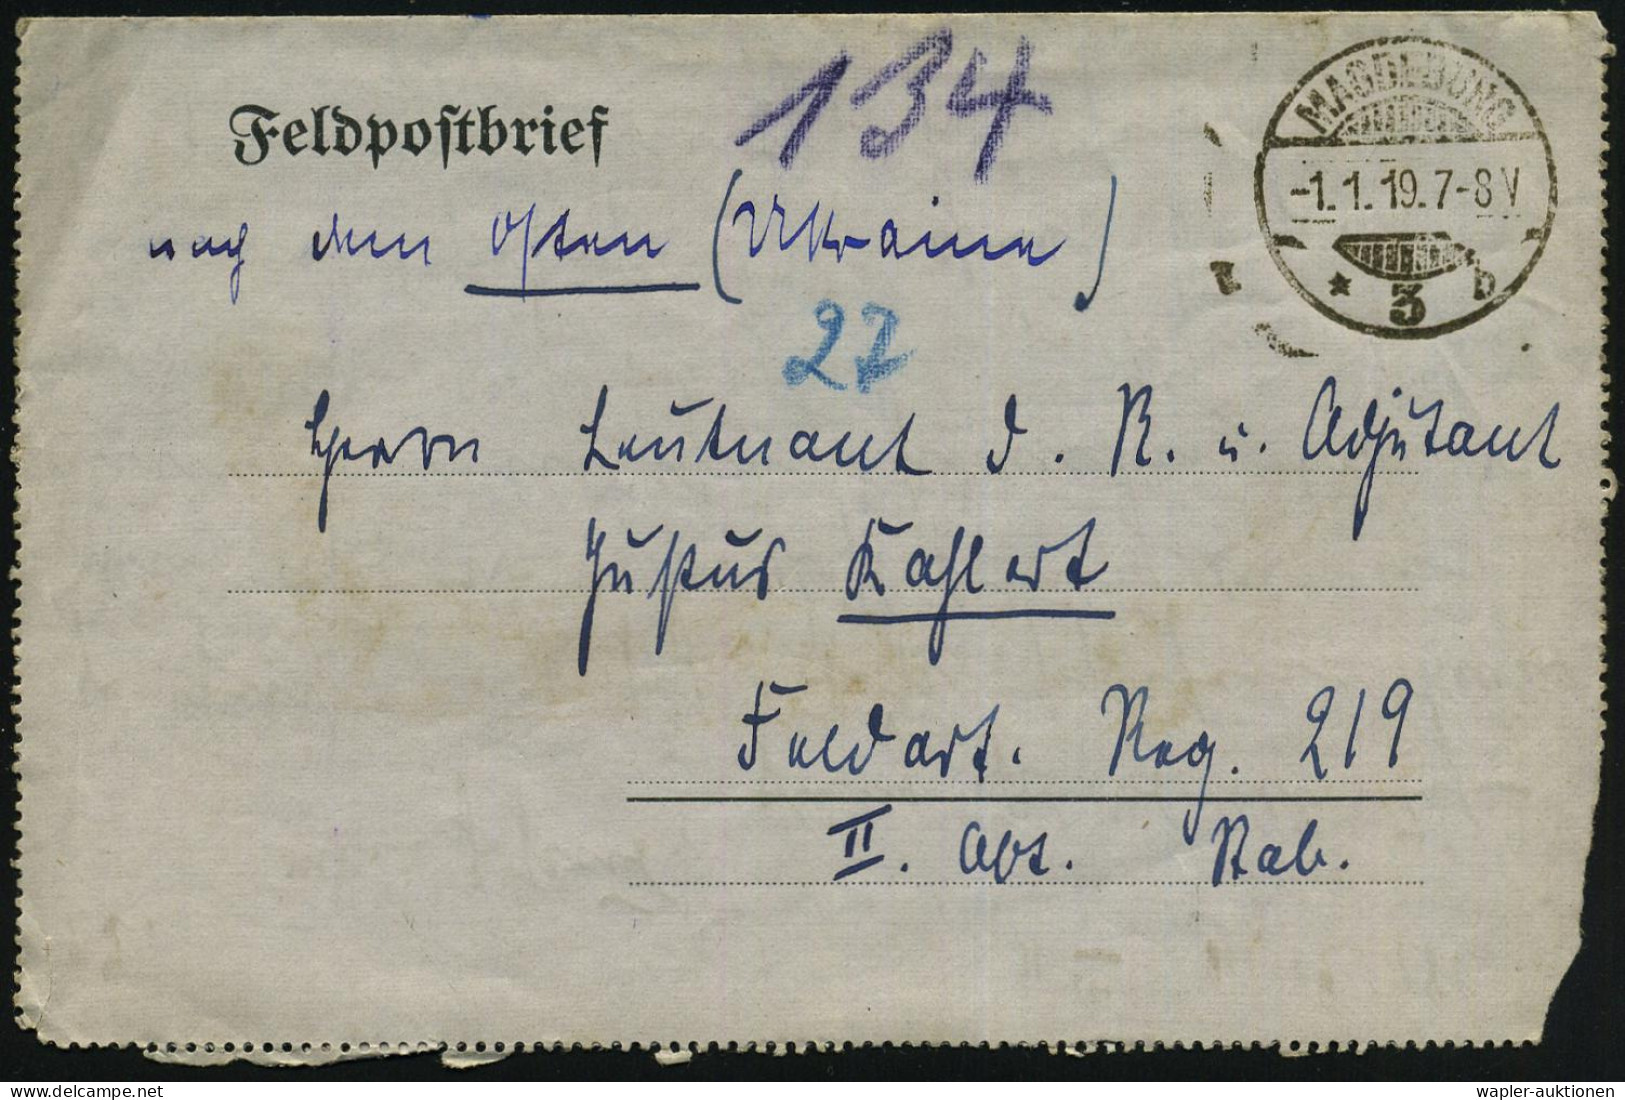 Feldpostbrief
134
MAGDEBURG
-1.1.19.7-8V
* 3 b
nach dem Osten (Ukraine)
27
Herrn Leutnant d. R. u. Adjutant
Justus Kahlert
Feldart. Reg. 219
II. Abt. Stab.
wapler-auktionen